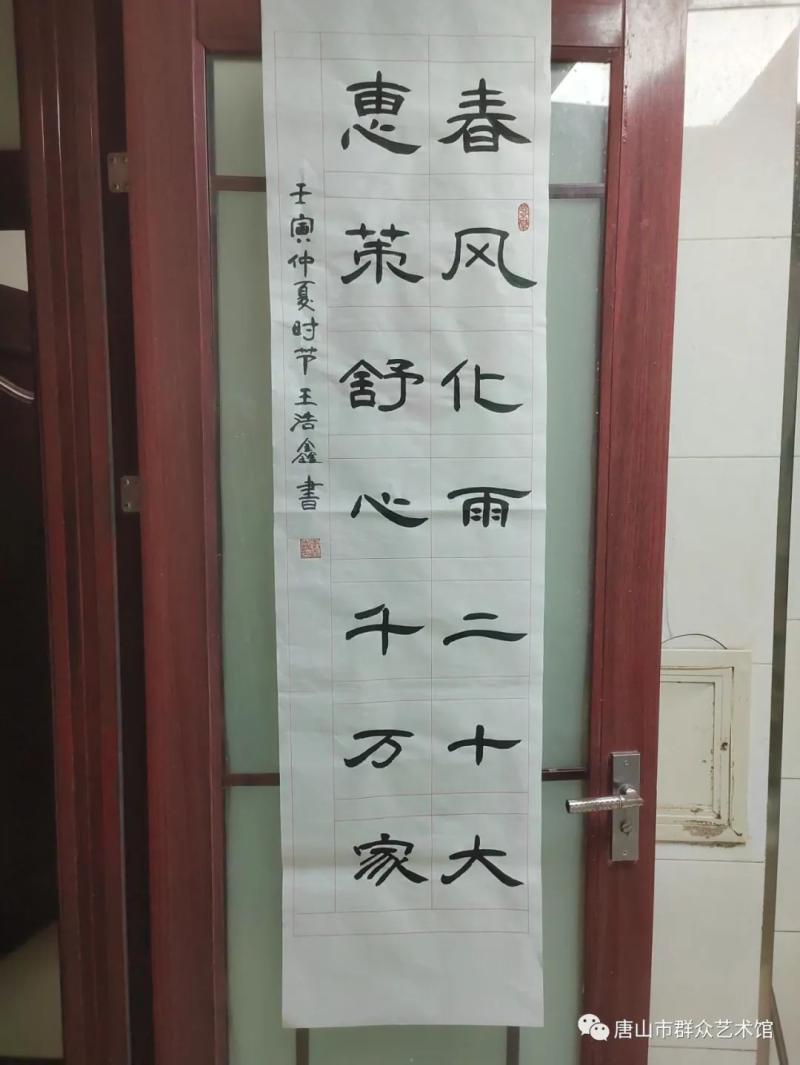 春风化雨二十大
惠策舒心千万家
壬寅仲夏时节王浩鑫書
唐山市群众艺术馆